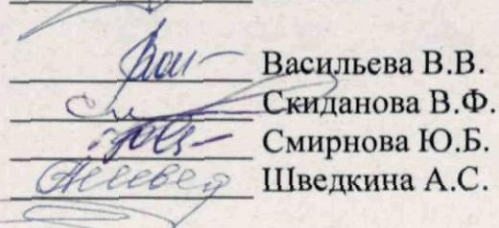 Васильева В.В.
Скиданова В.Ф.
Смирнова Ю.Б.
Шведкина А.С.